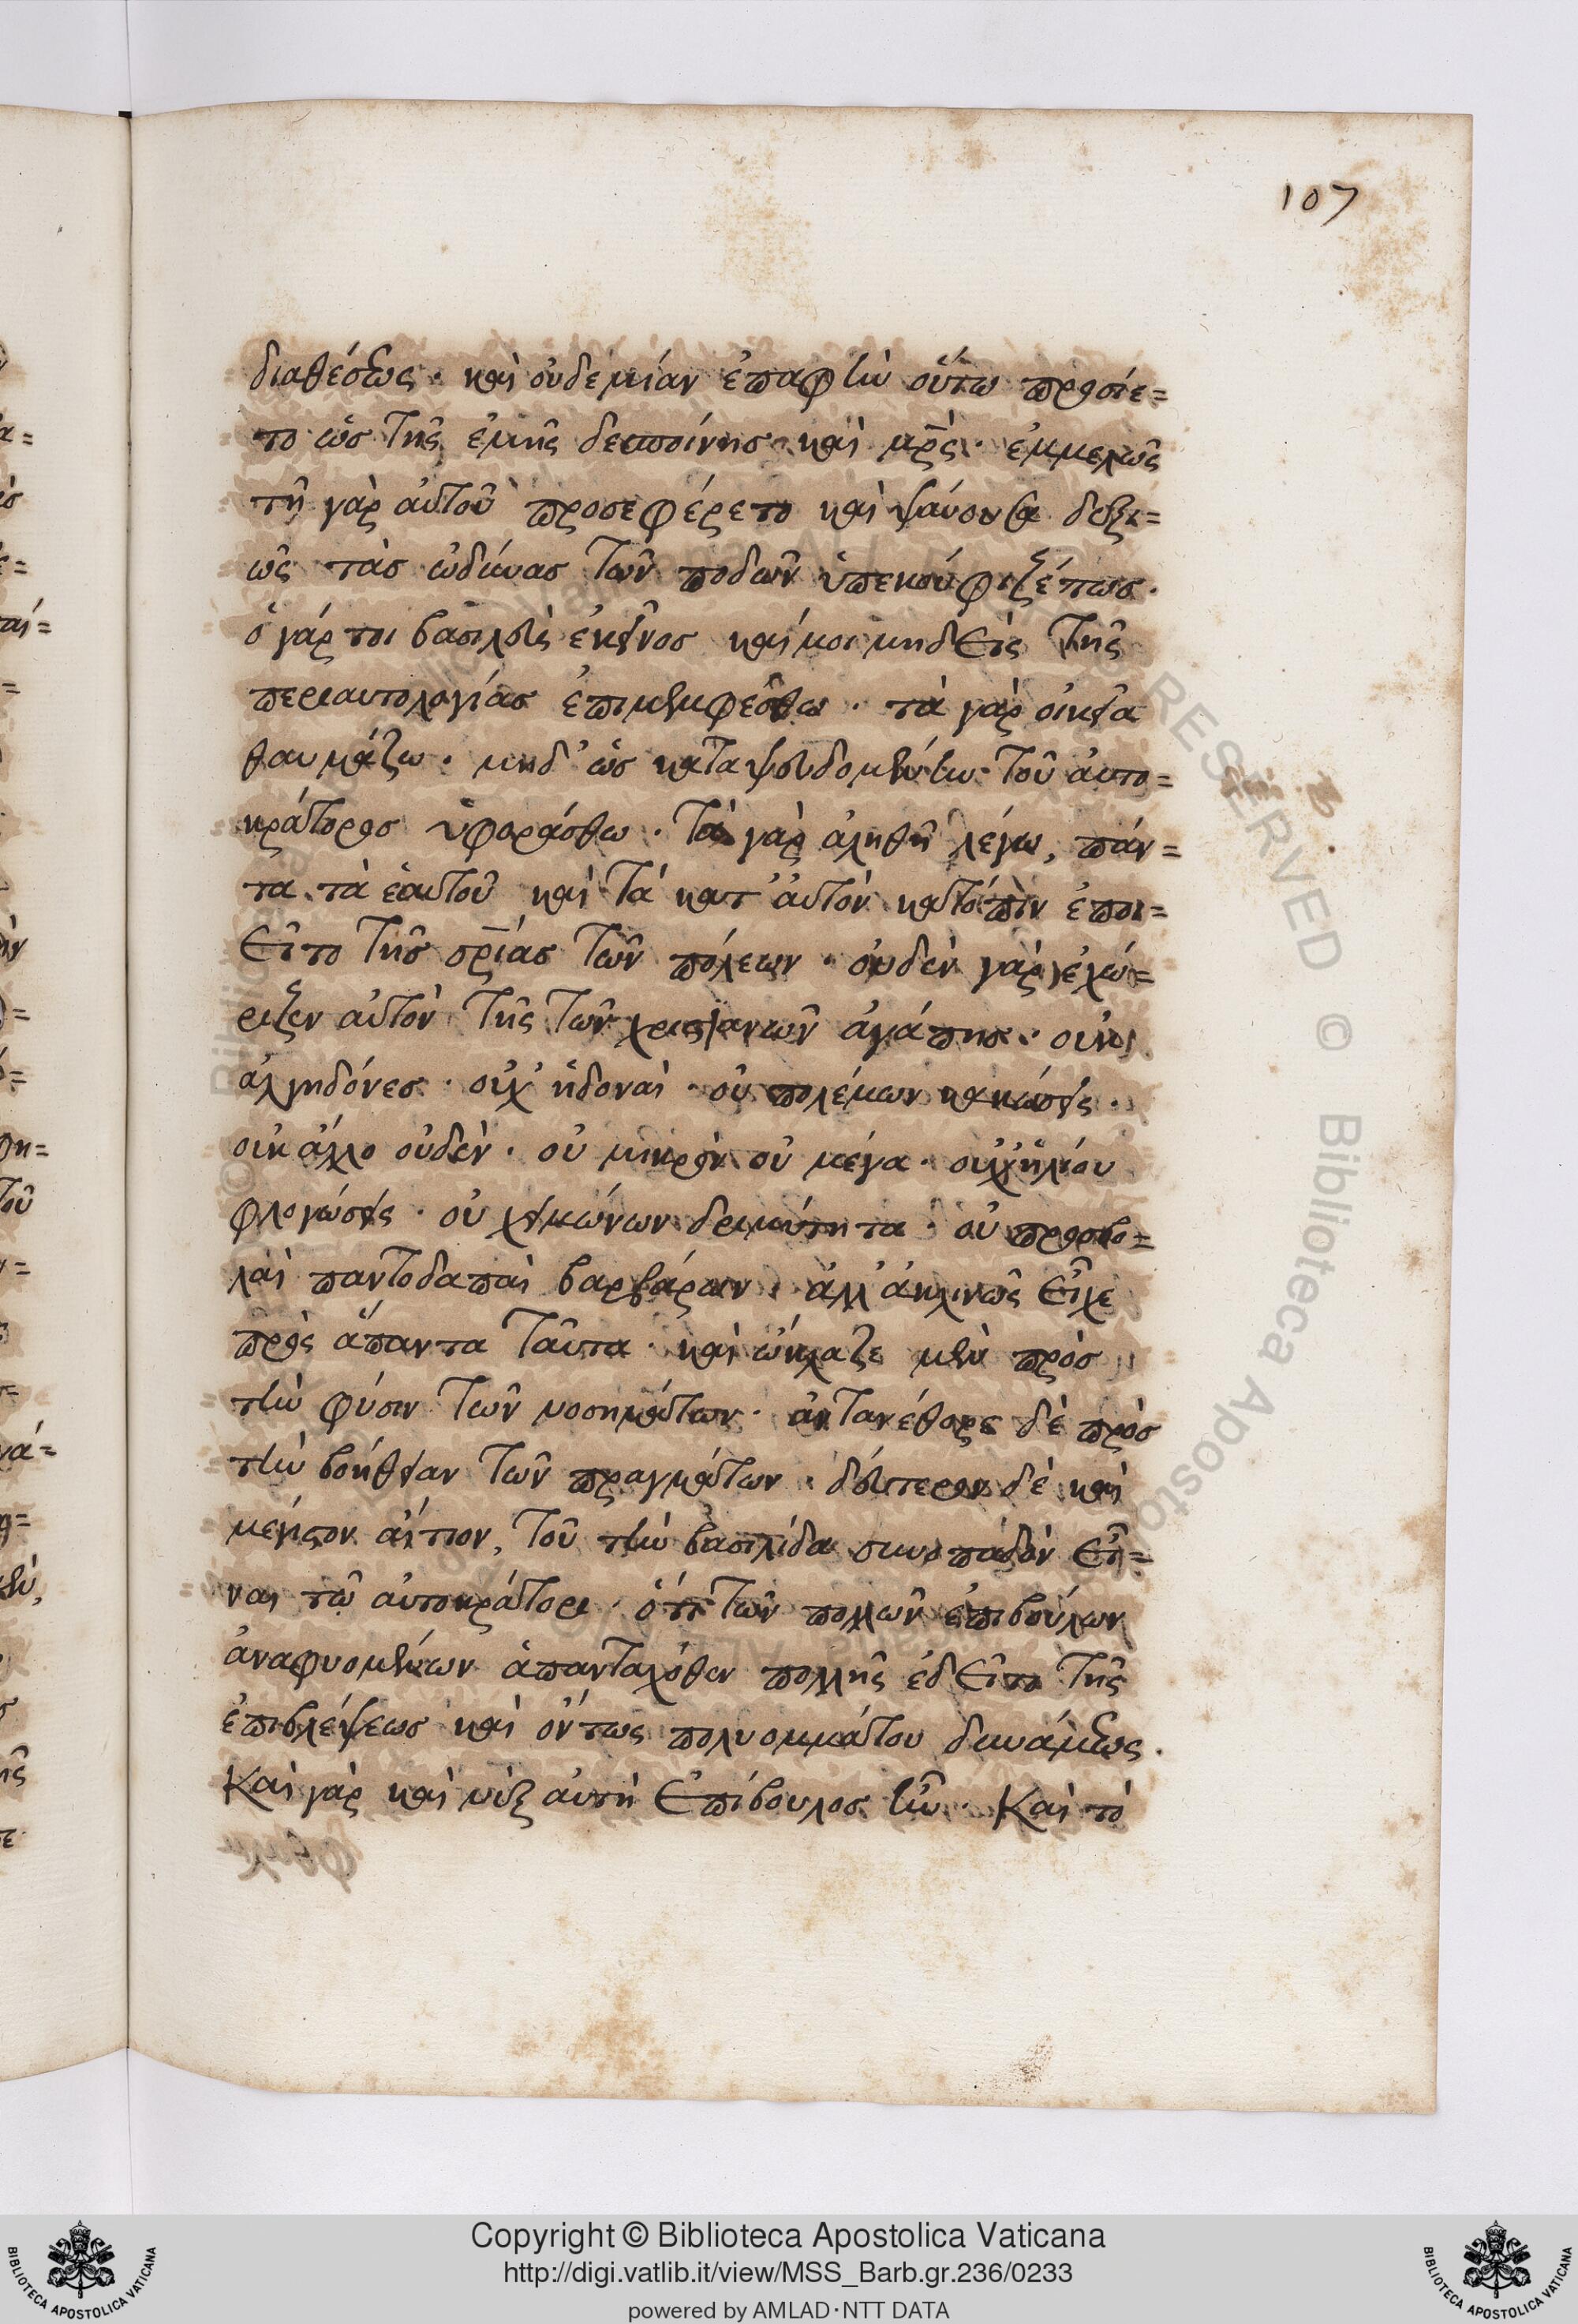 107
διαθέσεως· καὶ οὐδεμίαν ἐπαφὴν οὕτω προσίε=
το ὡς τῆς ἐμῆς δεσποίνης καὶ μρ̅ς· ἐμμελῶς
τῆ γὰρ αὐτοῦ προσεφέρετο καὶ ψαύουσα δεξι=
ῶς τὰς ὠδύνας τῶν ποδῶν ὑπεκούφιζέ πως·
ὁ γάρ τοι βασιλεὺς ἐκεῖνος καί μοι μηδεὶς τῆς
περιαυτολογίας ἐπιμεμφέσθω· τὰ γὰρ οἰκεῖα
θαυμάζω· μηδ' ὡς καταψευδομένην τοῦ αὐτο=
κράτορος ὑφοράσθω· Τὰ γὰρ ἀληθῆ λέγω, πάν=
τα τὰ ἑαυτοῦ καὶ τὰ κατ' αὐτὸν κατόπιν ἐποι=
εῖτο τῆς σρ̅ίας τῶν πόλεων· οὐδὲν γὰρ ἐχώ=
ριζεν αὐτὸν τῆς τῶν χριστιανῶν ἀγάπης· οὐκ
ἀλγηδόνες· οὐχ' ἡδοναὶ· οὐ πολέμων κακώσεις·
οὐκ ἄλλο οὐδὲν· οὐ μικρὸν οὐ μέγα· οὐχ ἡλίου
φλογώσεις· οὐ χειμώνων δριμύτητα· οὐ προσβο=
λαὶ παντοδαπαὶ βαρβάρων· ἀλλ' ἀκλινῶς εἶχε
πρὸς ἅπαντα ταῦτα· καὶ ὤκλαζε μὲν πρὸς
τὴν φύσιν τῶν νοσημάτων· ἀντανέθορε δὲ πρὸς
τὴν βοήθειαν τῶν πραγμάτων· δεύτερον δὲ καὶ
μέγιστον αἴτιον, τοῦ τὴν βασιλίδα συνοπαδὸν εἶ=
ναι τῷ αὐτοκράτορι· ὅτι τῶν πολλῶν ἐπιβούλων
ἀναφυομένων ἁπανταχόθεν πολλῆς ἐδεῖτο τῆς
ἐπιβλέψεως καὶ ὄντως πολυομμάτου δυνάμεως·
Καὶ γὰρ καὶ νὺξ αὐτὴ ἐπίβουλος ἦν· Καὶ τὸ
Copyright © Biblioteca Apostolica Vaticana
http://digi.vatlib.it/view/MSS_Barb.gr.236/0233
powered by AMLAD·NTT DATA